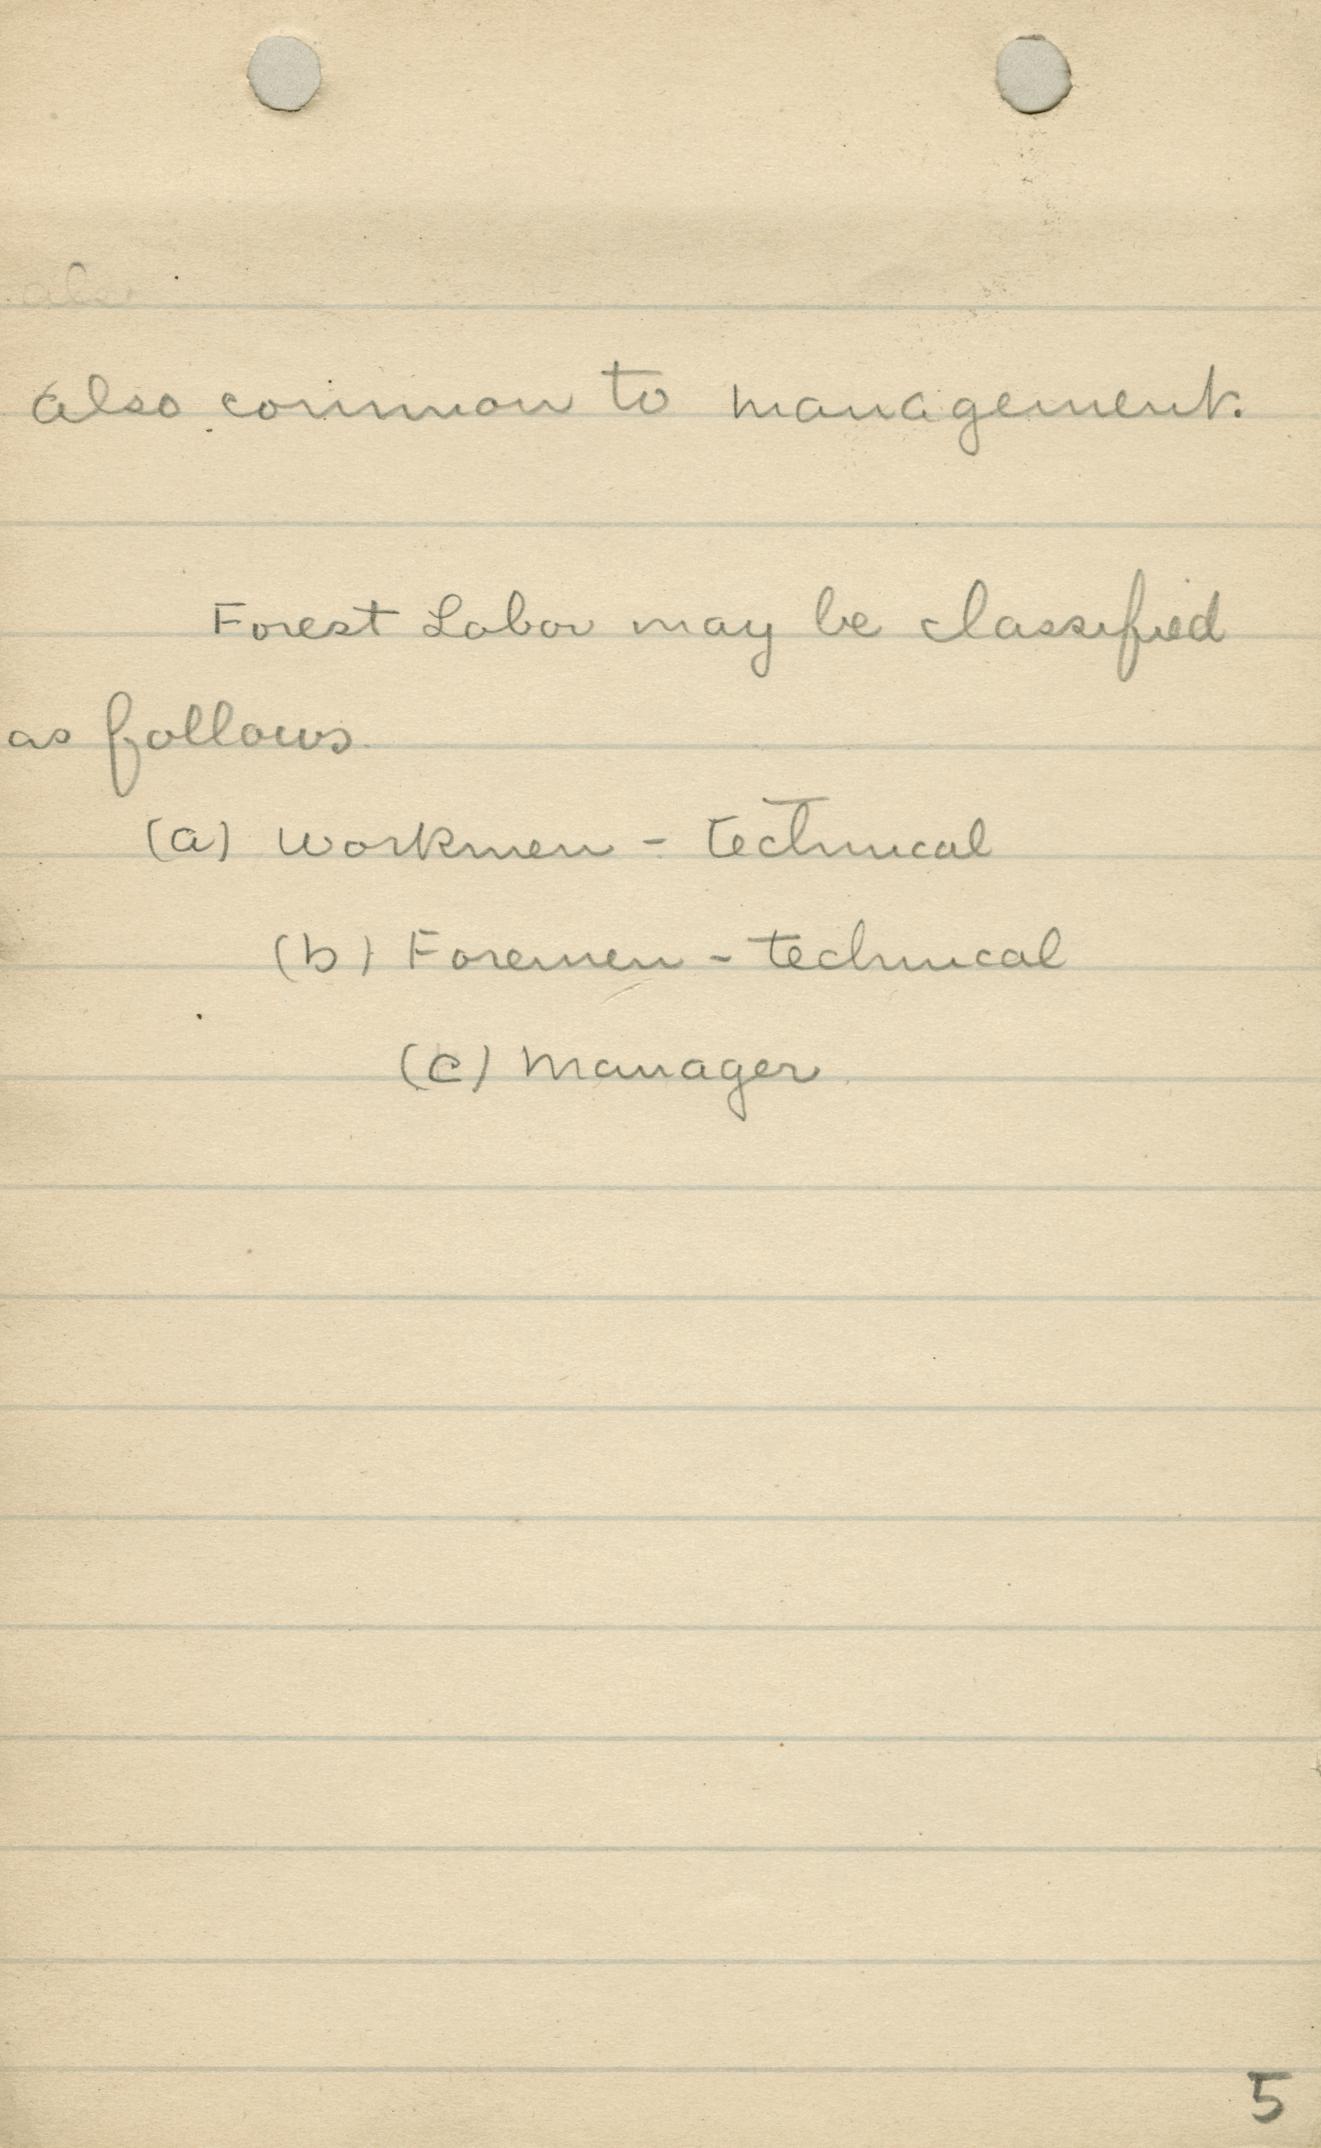 also common to management.
Forest Labor may be classified
as follows.
(a) Workmen - technical
(b) Foremen - technical
(c) Manager.
5